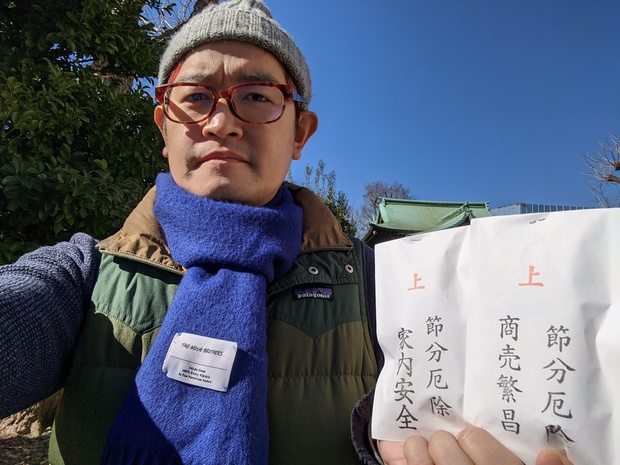 patagonia
THE INOUE BROTHERS...
上
節分厄除
家内安全
上
節分厄除
商売繁昌